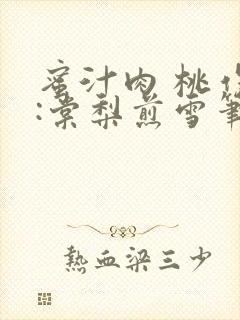 蜜汁肉桃作
:棠梨煎雪筆
熱血梁三少